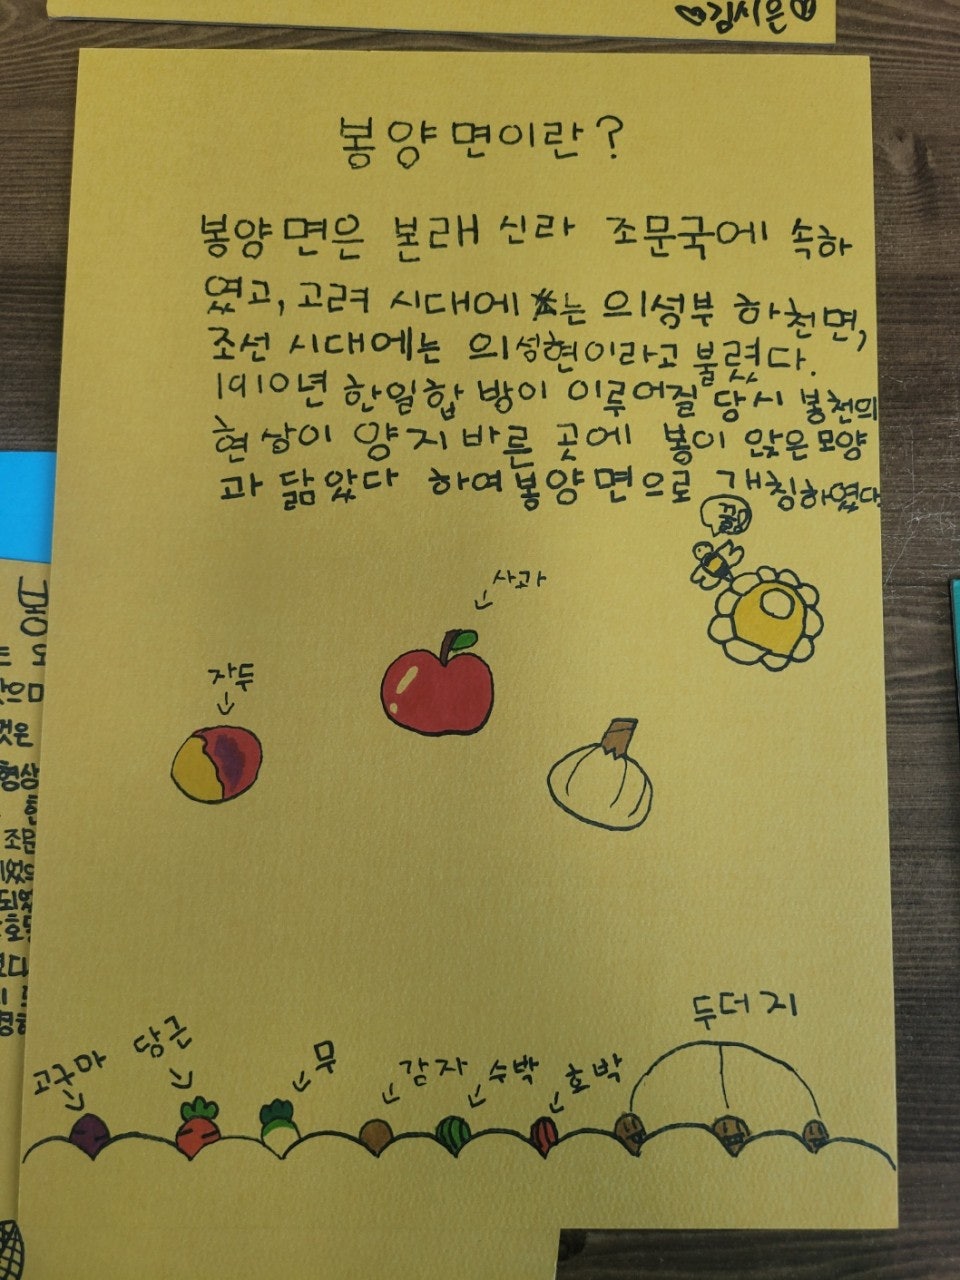 김시은
봉양면이란?
봉양면은 본래 신라 조문국에 속하
였고, 고려 시대에는 의성부 하천면,
조선 시대에는 의성현이라고 불렸다.
1910년 한일합방이 이루어질 당시 봉천의
현상이 양지바른 곳에 봉이 앉은 모양
과 닮았다 하여 봉양면으로 개칭하였다
꿀
사과
자두
두더지
고구마 당근 무 감자 수박 호박
봉
것은
형상
조문